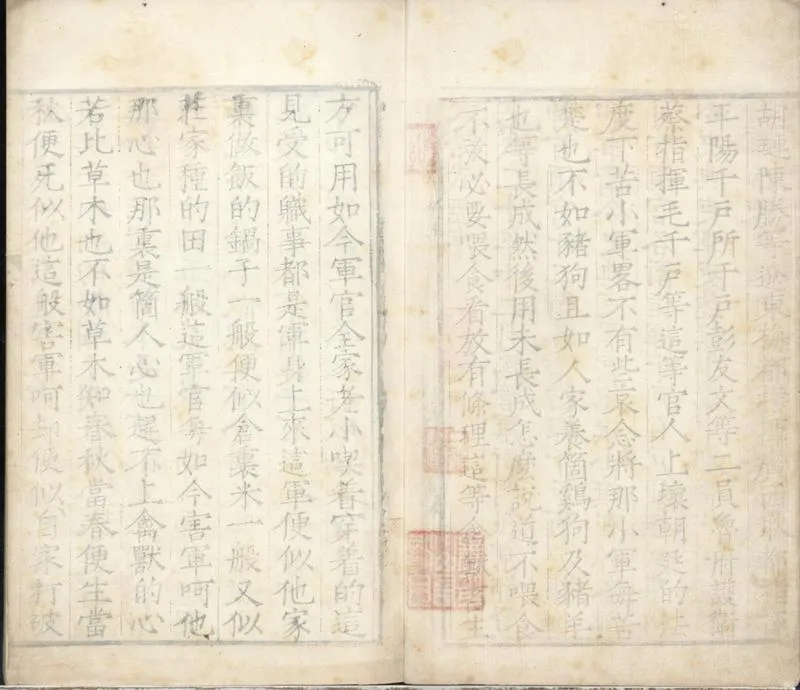 胡璉陳勝等遼東
平陽千戶所千戶彭友文等二員魯府護衛
蔡指揮毛千戶等這等官人上壞朝廷的法
度下苦小軍畧不有些哀念將那小軍每苦
楚也不如豬狗且如人家養箇鷄狗及豬羊
也等長成然後用未長成怎麽說道不喂食
不放必要喂食看放有條理這等禽獸畜生
方可用如今軍官全家老小喫着穿着的這
見受的職事都是軍身上來這軍便似他家
裏做飯的鍋子一般便似倉裏米一般又似
莊家種的田一般這軍官每如今害軍呵他
那心也那裏是箇人心也趕不上禽獸的心
若比草木也不如草木知春秋當春便生當
秋便死似他這般害軍呵却便似自家打破